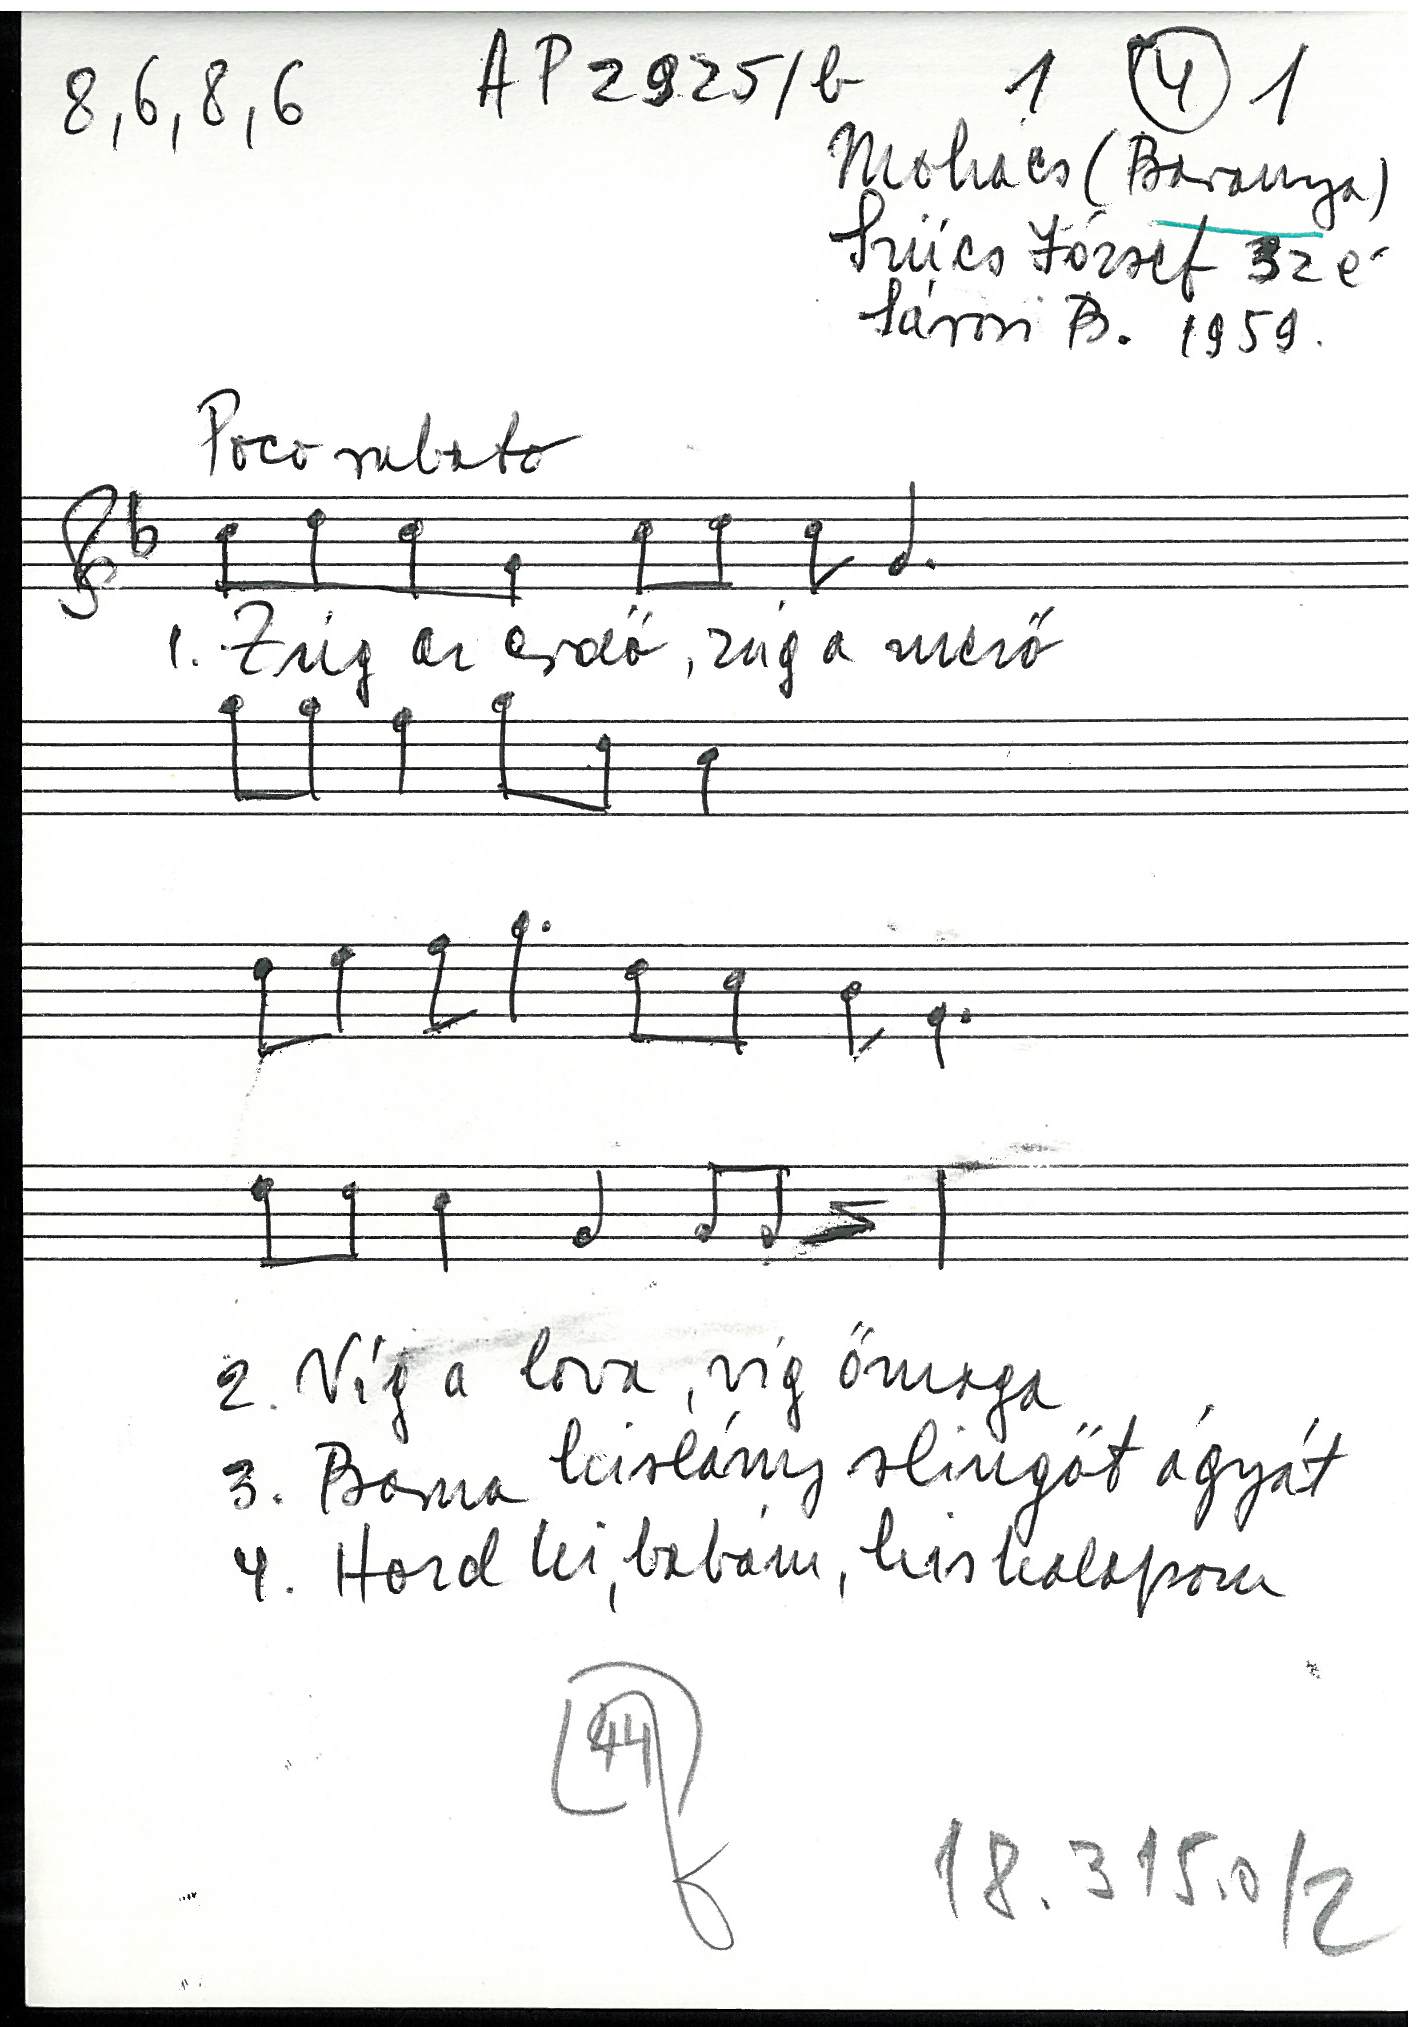 8,6,8,6 AP 2925/b 1 4 1
Mohács (Baranya)
Szücs József 32 é
Sárosi B. 1959.
Poco rubato
1. Zúg az erdő, zúg a mező
2. Víg a lova, víg őmaga
3. Barna kislány slingöt ágyát
4. Hord ki, babám, kiskalapom
44
18.315.0/2